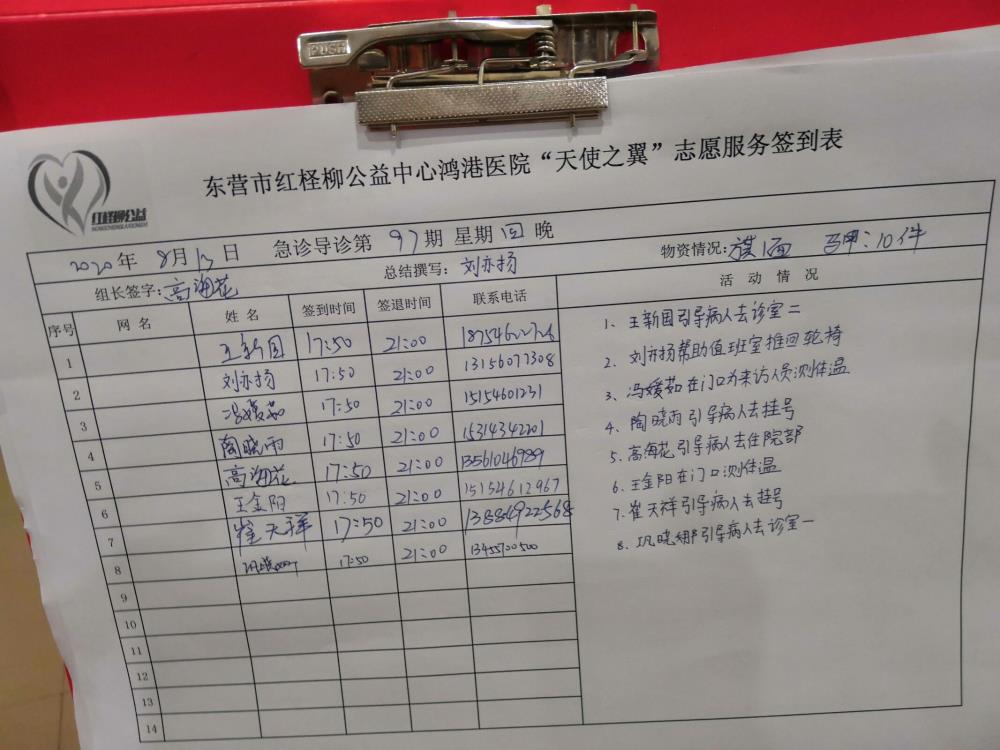 PUSH
红柽柳公益
东营市红柽柳公益中心鸿港医院“天使之翼”志愿服务签到表
2020年 8月13日 急诊导诊第 97期 星期四 晚 物资情况: 旗1面 马甲:10件
组长签字: 高海花 总结撰写: 刘亦扬
序号 网名 姓名 签到时间 签退时间 联系电话 活动情况
1 王新国 17:50 21:00
2 刘亦扬 17:50 21:00 13156077308
3 冯媛茹 17:50 21:00 15154601231
4 陶晓雨 17:50 21:00 15314342201
5 高海花 17:50 21:00 13561046989
6 王金阳 17:50 21:00 15154612967
7 崔天祥 17:50 21:00 13884922568
8 17:50 21:00 13455700500
9
10
11
12
13
14
1、王新国引导病人去诊室二
2、刘亦扬帮助值班室推回轮椅
3、冯媛茹在门口为来访人员测体温
4、陶晓雨引导病人去挂号
5、高海花引导病人去住院部
6、王金阳在门口测体温
7、崔天祥引导病人去挂号
8、巩晓娜引导病人去诊室一